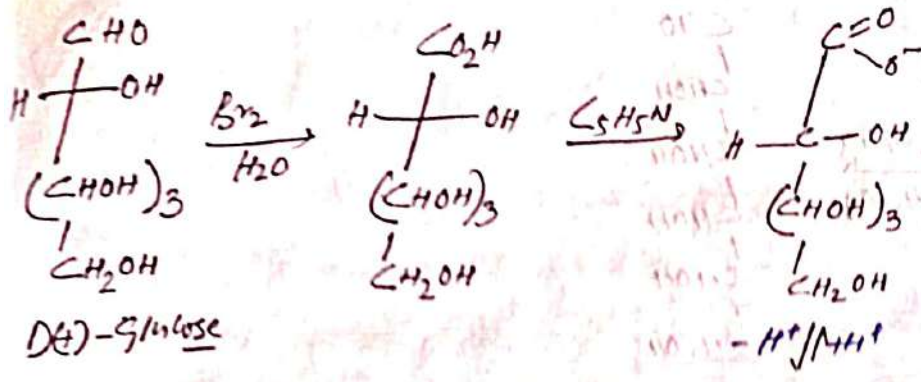 CHO
H OH
(CHOH)3
CH2OH
D(+)-Glucose
Br2
H2O
CO2H
H OH
(CHOH)3
CH2OH
C5H5N
C=O
O-
H - C - OH
(CHOH)3
CH2OH
- H+/